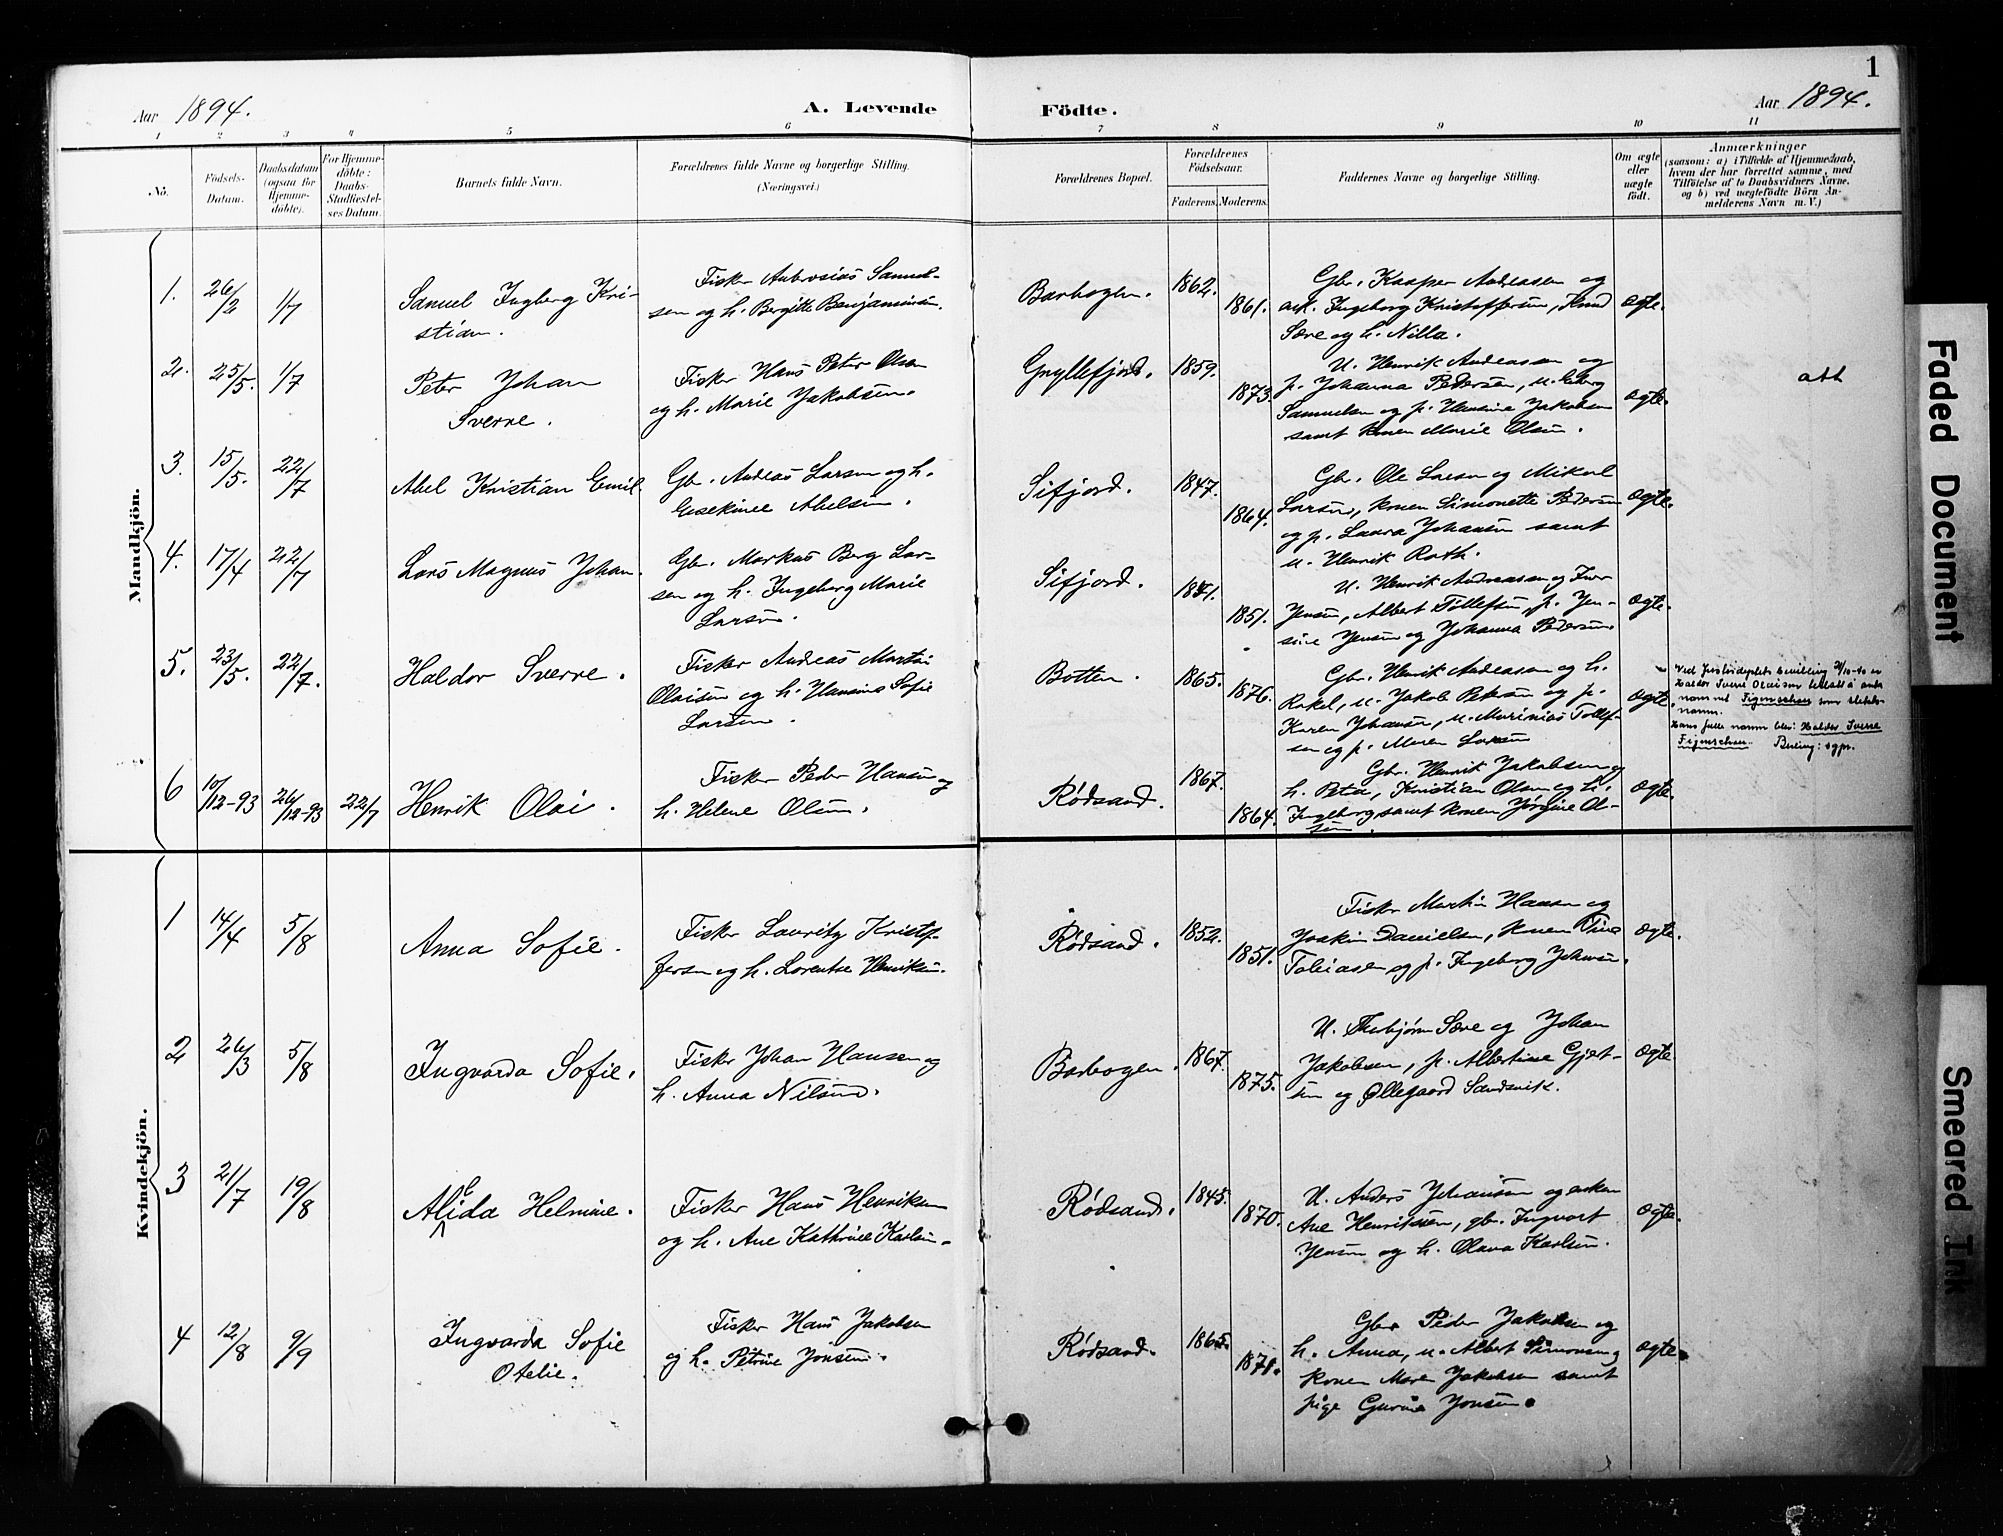 1
Aar 1894.
A. Levende
Födte.
Aar 1894.
1 2 3 4 5 6 7 8 9 10 11
No.
Födsels-
Datum.
Daabsdatum
(ogsaa for
Hjemme-
döbte).
For Hjemme-
döbte:
Daabs-
Stadfæstel-
ses Datum.
Barnets fulde Navn.
Forældrenes fulde Navne og borgerlige Stilling.
(Næringsvei.)
Forældrenes Bopæl.
Forældrenes
Födselsaar.
Faderens.
Moderens.
Faddernes Navne og borgerlige Stilling.
Om ægte
eller
uægte
födt.
Anmærkninger
(saasom: a) i Tilfælde af Hjemmedaab,
hvem der har forrettet samme, med
Tilföielse af to Daabsvidners Navne,
og b) ved uægtefödte Börn An-
melderens Navn m. V.)
Mandkjön.
1. 26/2 1/7
Samuel Ingberg Kri-
stian.
Fisker Ambrosius Samuel-
sen og h. Bergitte Benjaminsen.
Barbogen. 1862. 1861.
Gbr. Kasper Andreasen og
enk. Ingeborg Kristoffersen, Knud
Sære og h. Nilla.
Ægte.
2. 25/5. 1/7
Peter Johan
Sverre.
Fisker Hans Peter Olsen
og h. Marie Jakobsen.
Gryllefjord. 1859. 1873.
U. Henrik Andreasen og
p. Johanna Pedersen, u. Edberg
Samuelsen og p. Hansine Jakobsen
samt konen Marie Olsen.
Ægte.
att
3. 15/5. 22/7
Abel Kristian Emil.
Gbr. Andreas Larsen og h.
Esekine Abelsen.
Sifjord. 1847. 1864.
Gbr. Ole Larsen og Mikal
Larsen, konen Simonette Pedersen
og p. Laura Johansen samt
u. Henrik Roth.
Ægte.
4. 17/4 22/7
Lars Magnus Johan.
Gbr. Markus Berg Lar-
sen og h. Ingeborg Marie
Larsen.
Sifjord. 1851.
U. Henrik Andreasen og Iver
Jensen, Albert Tollefsen, p. Jen-
sine Jensen og Johanna Pedersen.
Ægte.
5. 23/5. 22/7.
Haldor Sverre.
Fisker Andreas Martin
Olaisen og h. Hansine Sofie
Larsen.
Botten. 1865. 1876.
Gbr. Henrik Andreasen og h.
Rakel, u. Jakob Petersen og p.
Karen Johansen, u. Marinius Tollef-
sen og p. Maren Larsen
Ægte.
Ved Justisdeptets bevilling 21/10-40 er
Haldor Sverre Olaisen tillatt å anta
navnet Figenschou som slekts-
navn.
Hans fulle navn blir: Haldor Sverre
Figenschou. Berling: sgpr.
6 10/12-93 26/12-93 22/7
Henrik Olai.
Fisker Peder Hansen og
h. Helene Olsen.
Rødsand. 1867. 1864.
Gbr. Henrik Jakobsen og
h. Beta, Kristian Olsen og h.
Ingeborg samt konen Jørgine Ol-
sen.
Ægte.
Kvindekjön.
1 14/4 5/8
Anna Sofie.
Fisker Lauritz Kristof-
fersen og h. Lorentse Henriksen.
Rødsand. 1852. 1851.
Fisker Martin Hansen og
Joakim Danielsen, konen Tine
Tobiasen og p. Ingeborg Johnsen.
Ægte.
2 26/3 5/8
Ingvarda Sofie.
Fisker Johan Hansen og
h. Anna Nilsen.
Barbogen. 1867. 1875.
U. Thorbjørn Sære og Johan
Jakobsen, p. Albertine Gjert-
sen og Øllegaard Sandsvik.
Ægte
3 21/7 19/8
Alida Helmine.
Fisker Hans Henriksen
og h. Ane Kathrine Karlsen.
Rødsand. 1845. 1870.
U. Anders Johansen og enken
Ane Henriksen, gbr. Ingvart
Jensen og h. Olava Karlsen.
Ægte.
4 12/8 9/9
Ingvarda Sofie
Otelie.
Fisker Hans Jakobsen
og h. Petrine Jonsen.
Rødsand. 1865. 1871.
Gbr. Peder Jakobsen og
h. Anna, u. Albert Simonsen og
konen Mare Jakobsen samt
pige Gurine Jonsen.
Ægte.
Faded Document
Smeared Ink